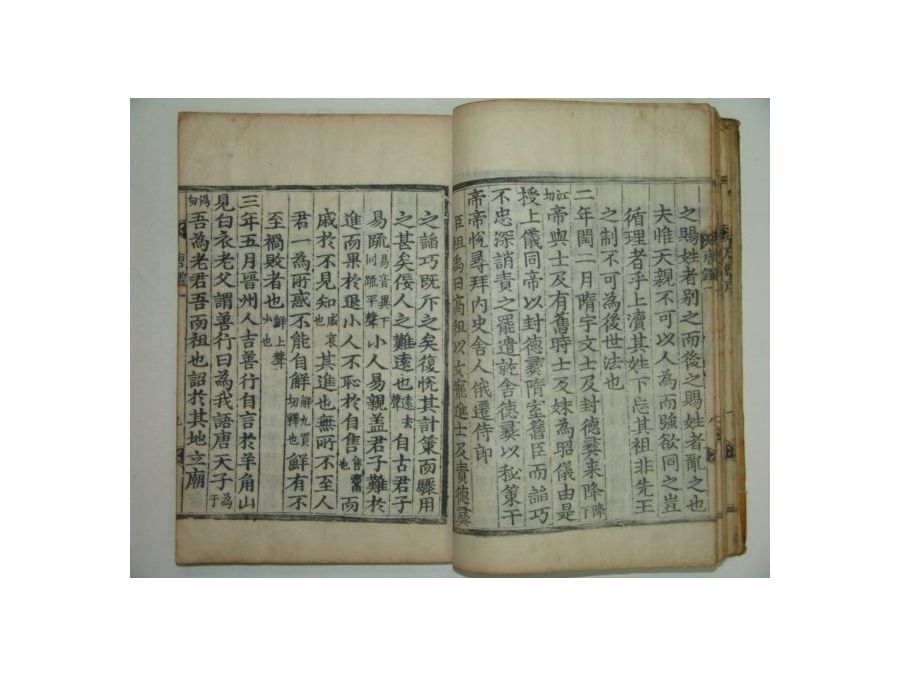 之賜姓者别之而後之賜姓者亂之也
夫惟天親不可以人為而強欲同之豈
循理者乎上瀆其姓下忘其祖非先王
之制不可為後世法也
二年閏二月隋宇文士及封德彛来降降下
江切帝與士及有舊時士及妹為昭儀由是
授上儀同帝以封德彛隋室舊臣而諂巧
不忠深誚責之罷遣於舍德彛以秘策干
帝帝悅尋拜内史舍人俄遷侍郎
臣祖禹曰高祖以文寵進士及責德彛
之諂巧既斥之矣復悅其計策而驟用
之甚矣佞人之難遠也遠去聲自古君子
易疏易音異下同疏平聲小人易親盖君子難於
進而果於退小人不恥於自售售鬻也而
戚於不見知戚哀也其進也無所不至人
君一為所惑不能自解解九買切釋也鮮有不
至禍敗者也鮮上聲少也
三年五月晉州人吉善行自言於羊角山
見白衣老父謂善行曰為我語唐天子為于
偽切吾為老君吾而祖也詔於其地立廟
唐鑑一